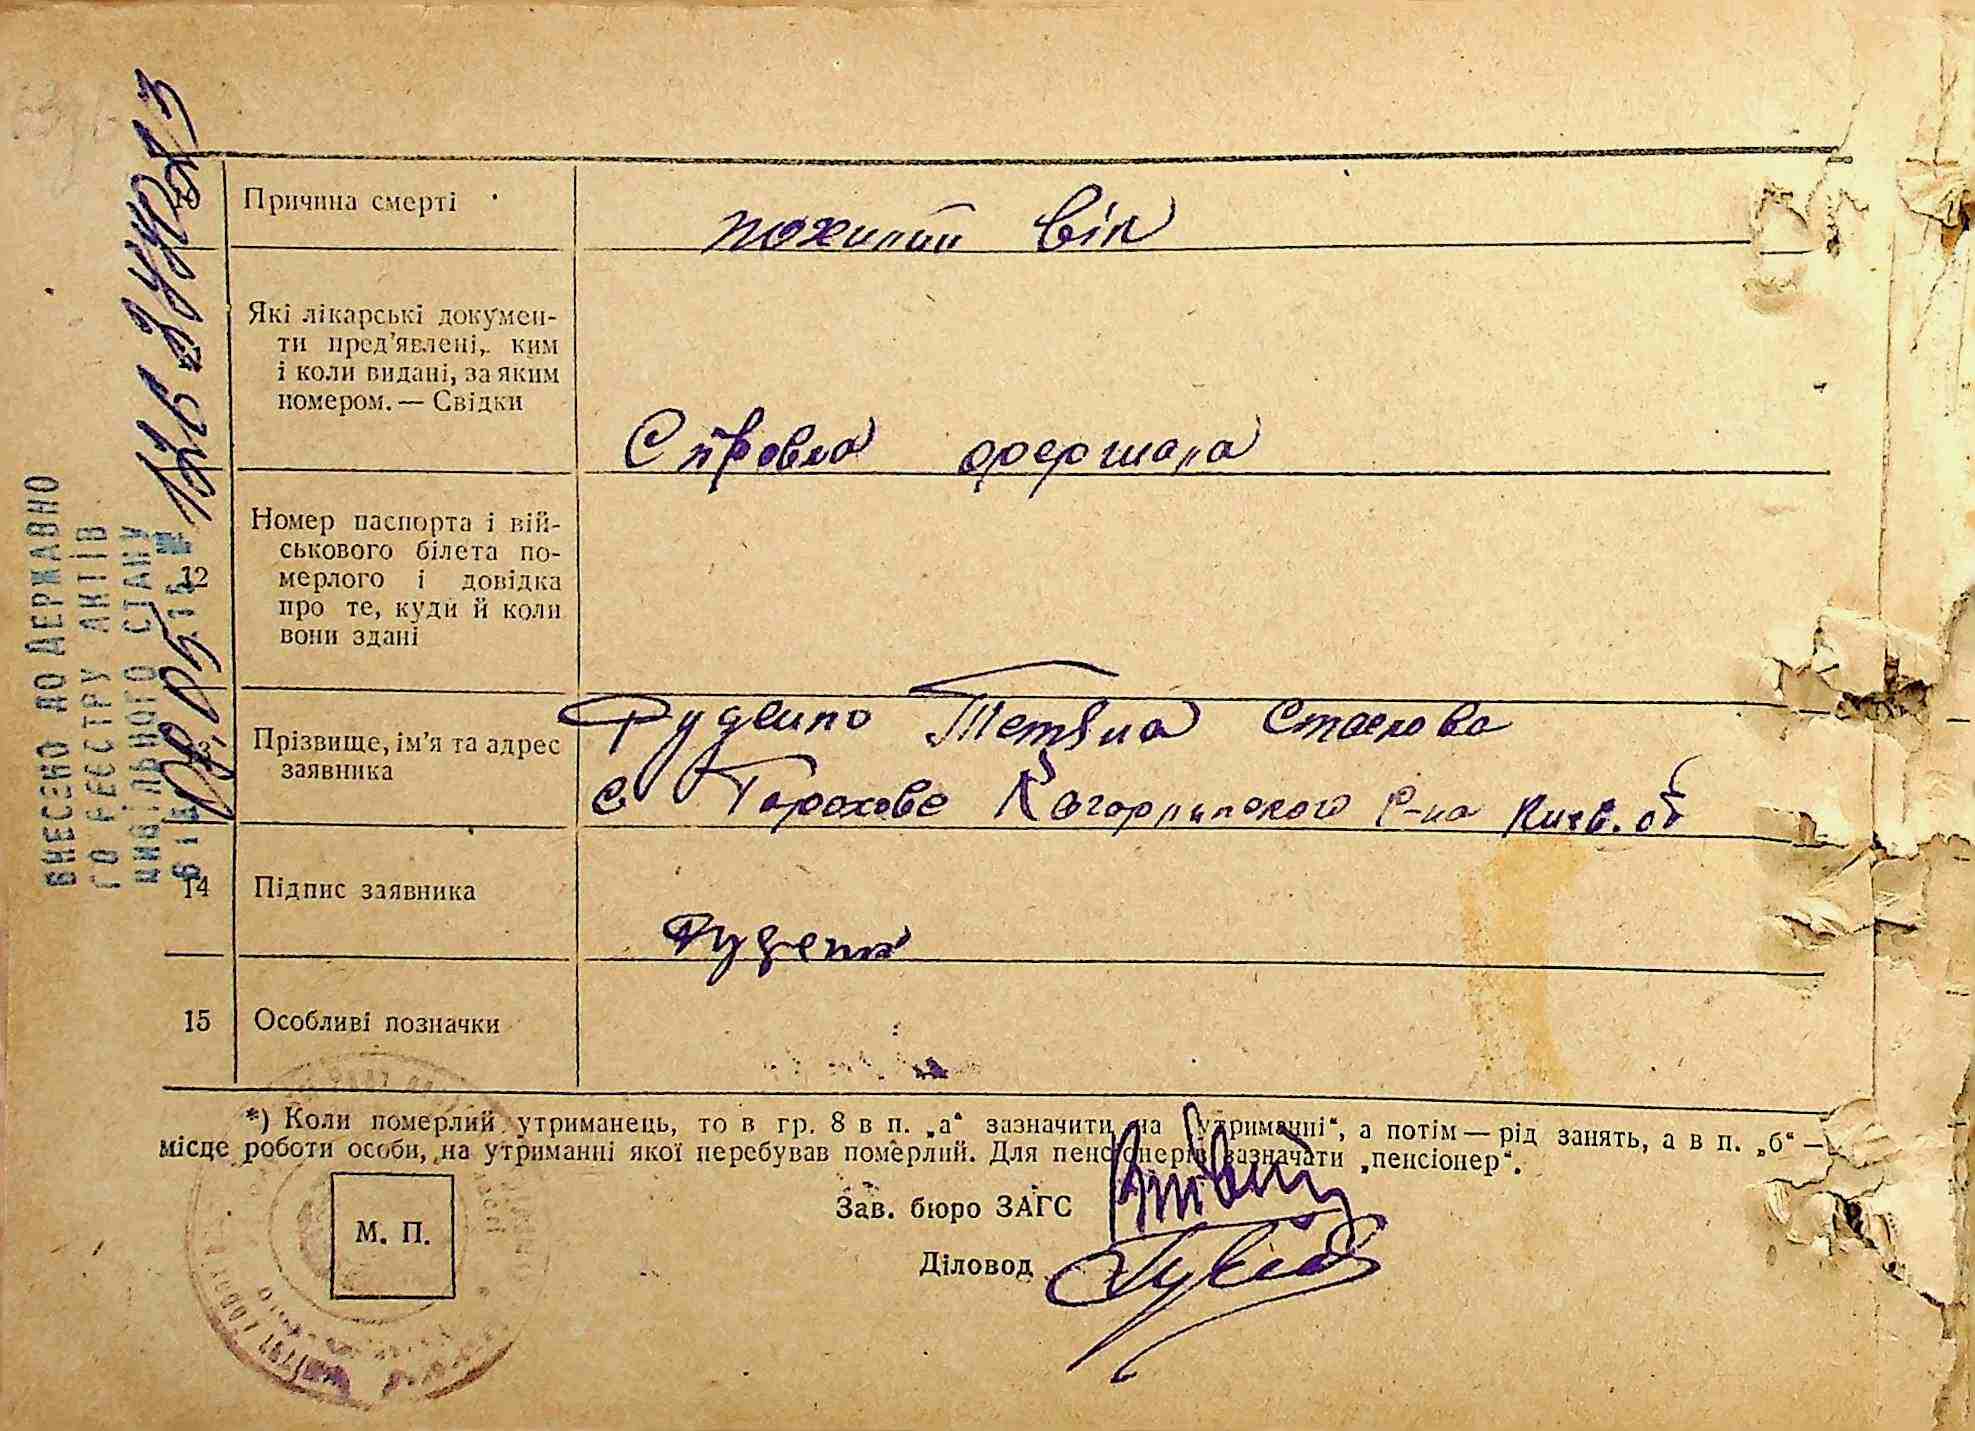 Причина смерті
похилий вік
Які лікарські докумен-
ти пред'явлені, ким
і коли видані, за яким
номером. — Свідки
Справка фершала
12
Номер паспорта і вій-
ськового білета по-
мерлого і довідка
про те, куди й коли
вони здані
Прізвище, ім'я та адрес
заявника
Руденко Тетяна
с Горохове Кагарлицкого р-на Киев. об
14
Підпис заявника
Руденко
15
Особливі позначки
*) Коли померлий утриманець, то в гр. 8 в п. „а“ зазначити „на утриманні“, а потім — рід занять, а в п. „б“ —
місце роботи особи, на утриманні якої перебував померлий. Для пенсіонерів зазначати „пенсіонер“.
Зав. бюро ЗАГС
Діловод
М. П.
ВНЕСЕНО ДО ДЕРЖАВНО
ГО РЕЄСТРУ АКТІВ
ЦИВІЛЬНОГО СТАНУ